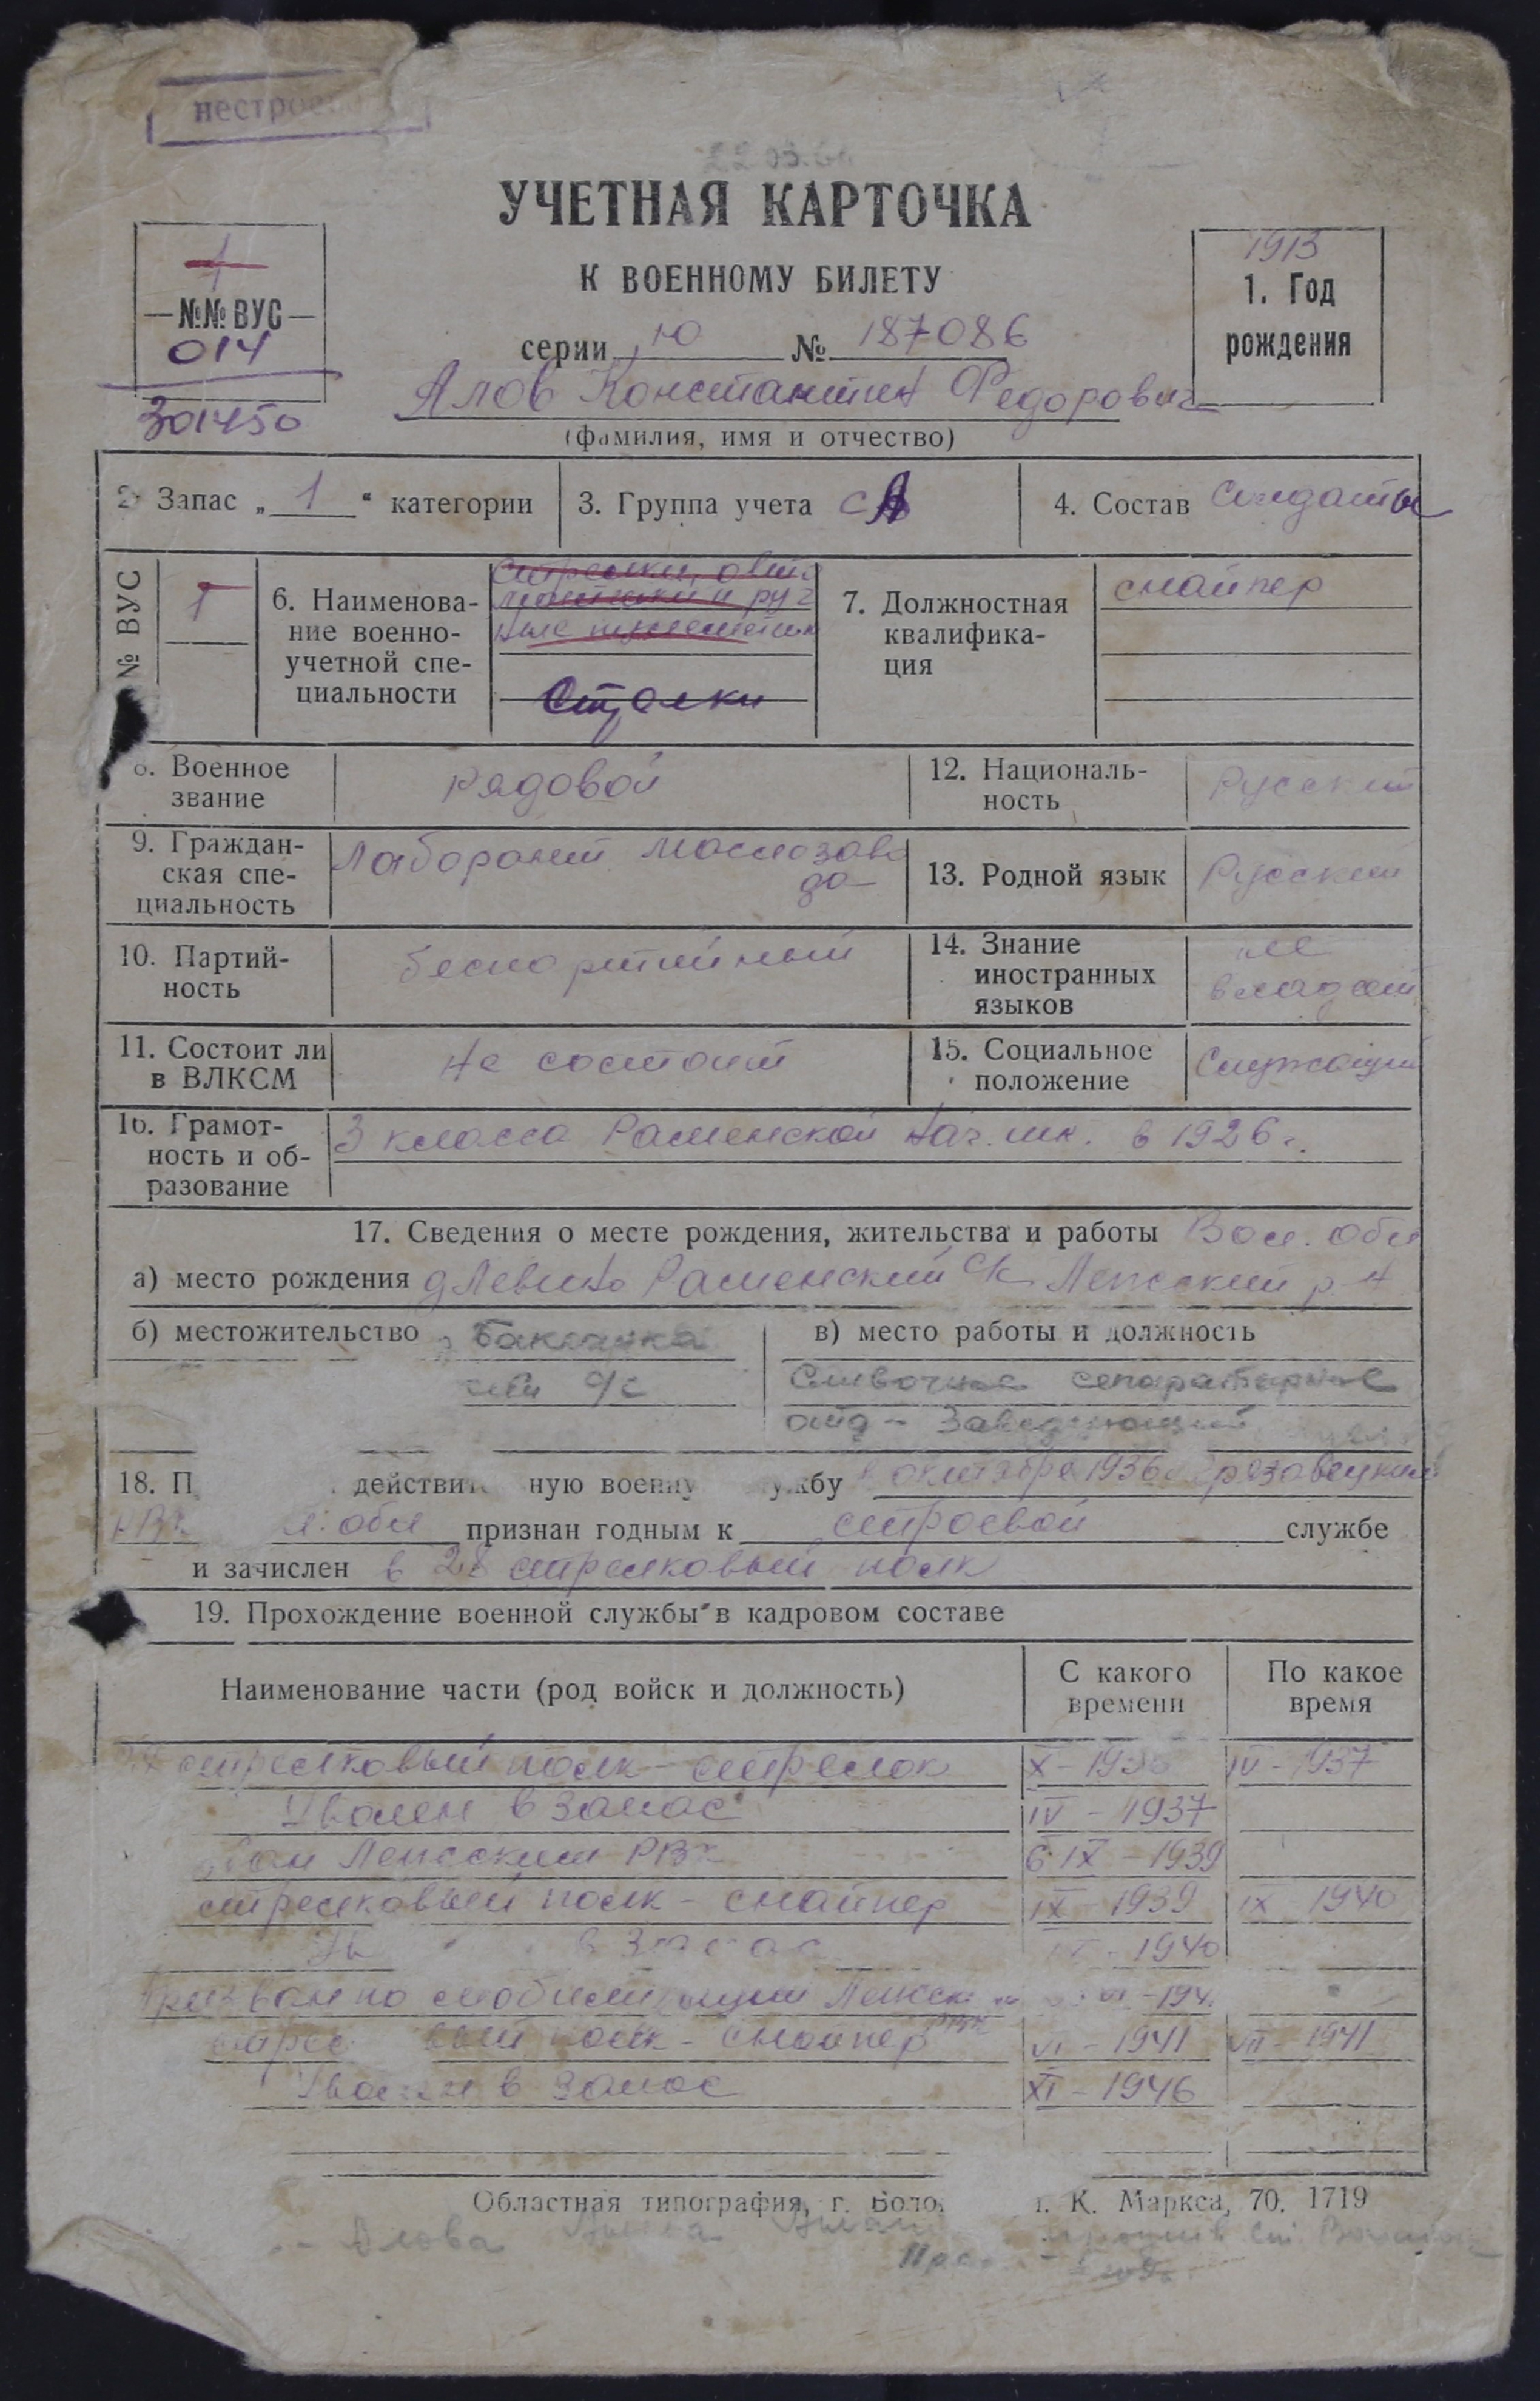 УЧЕТНАЯ КАРТОЧКА
К ВОЕННОМУ БИЛЕТУ
серии Ю № 187086
1
№№ ВУС
014
301450
1913
1. Год
рождения
Алов Константин Федорович
(фамилия, имя и отчество)
2. Запас „ 1 “ категории
3. Группа учета СА
4. Состав Солдаты
№ ВУС
1
6. Наименова-
ние военно-
учетной спе-
циальности
Стрелки, авто
матчики и руч
ные пулеметчики
Стрелки
7. Должностная
квалифика-
ция
снайпер
8. Военное
звание
рядовой
12. Националь-
ность
Русский
9. Граждан-
ская спе-
циальность
Лаборант маслозаво
да
13. Родной язык
Русский
10. Партий-
ность
беспартийный
14. Знание
иностранных
языков
не
владеет
11. Состоит ли
в ВЛКСМ
не состоит
15. Социальное
положение
Служащий
16. Грамот-
ность и об-
разование
3 класса Раменской нач. шк. в 1926 г.
17. Сведения о месте рождения, жительства и работы Вол. обл
а) место рождения д Левино Раменский с/с Лежский р-н
б) местожительство Бакланка
с/с
в) место работы и должность
Сливочное сепараторное
отд - Заведующий
18. П действит ную военну ужбу октябре 1936 Грязовецким
РВ обл признан годным к строевой службе
и зачислен в 28 стрелковый полк
19. Прохождение военной службы в кадровом составе
Наименование части (род войск и должность)
С какого
времени
По какое
время
стрелковый полк - стрелок X - 1936 IV - 1937
Уволен в запас IV - 1937
Лежским РВК 6 IX - 1939
стрелковый полк - снайпер IX - 1939 IX 1940
в запас 1940
Призван по мобилизации Лежск VI - 194
стрел вый полк - снайпер VI - 1941 VII - 1941
Уволен в запас XI - 1946
Областная типография, г. Воло К. Маркса, 70. 1719
Алова